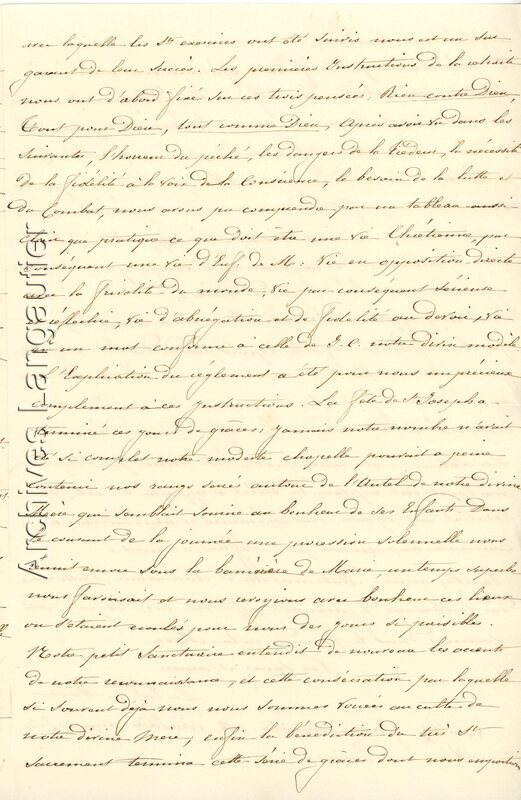 avec laquelle les Sts exercices ont été suivis nous est un sur
garant de leur succès. Les premières Instructions de la retraite
nous ont d'abord fixé sur ces trois pensées: Rien contre Dieu,
Tout pour Dieu, tout comme Dieu, Après avoir vu dans les
suivantes, l'horreur du péché, les dangers de la tiédeur, la nécessité
de la fidélité à la voix de la Conscience, le besoin de la lutte et
du Combat, nous avons pu comprendre par un tableau aussi
que pratique ce que doit être une vie Chrétienne, par
conséquent une vie d'Enf. de M: vie en opposition directe
avec la frivolité du monde, vie par conséquent sérieuse
réfléchie, vie d'abnégation et de fidélité au devoir, vie
en un mot conforme à celle de J. C. notre divin modèle
l'Explication du règlement a été pour nous un précieux
complément à ces Instructions. La fête de St Joseph a
terminé ces jours de grâces; jamais notre nombre n'avait
été si complet notre modeste chapelle pouvait à peine
contenir nos rangs serrés autour de l'Autel de notre divine
Mère qui semblait sourire au bonheur de ses Enfants Dans
le courant de la journée une procession solennelle nous
réunit encore sous la bannière de Marie, un temps superbe
nous favorisait et nous revoyions avec bonheur ces lieux
où s'étaient écoulés pour nous des jours si paisibles.
Notre petit Sanctuaire entendit de nouveau les accents
de notre reconnaissance, et cette consécration par laquelle
si souvent déjà nous nous sommes vouées au culte de
notre divine Mère, enfin la bénédiction du très St
Sacrement termina cette série de grâces dont nous emportions
Archives Langautier